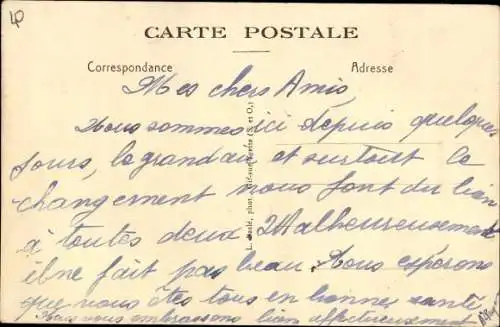 CARTE POSTALE
Correspondance
Adresse
Mes chers Amis,
Nous sommes ici depuis quelques
jours, le grand air et surtout le
changement nous font du bien
à toutes deux Malheureusement
il ne fait pas beau. Nous espérons
que vous êtes tous en bonne santé
Nous vous embrassons bien affectueusement
phot. Gif-sur-Yvette (S. et O.)